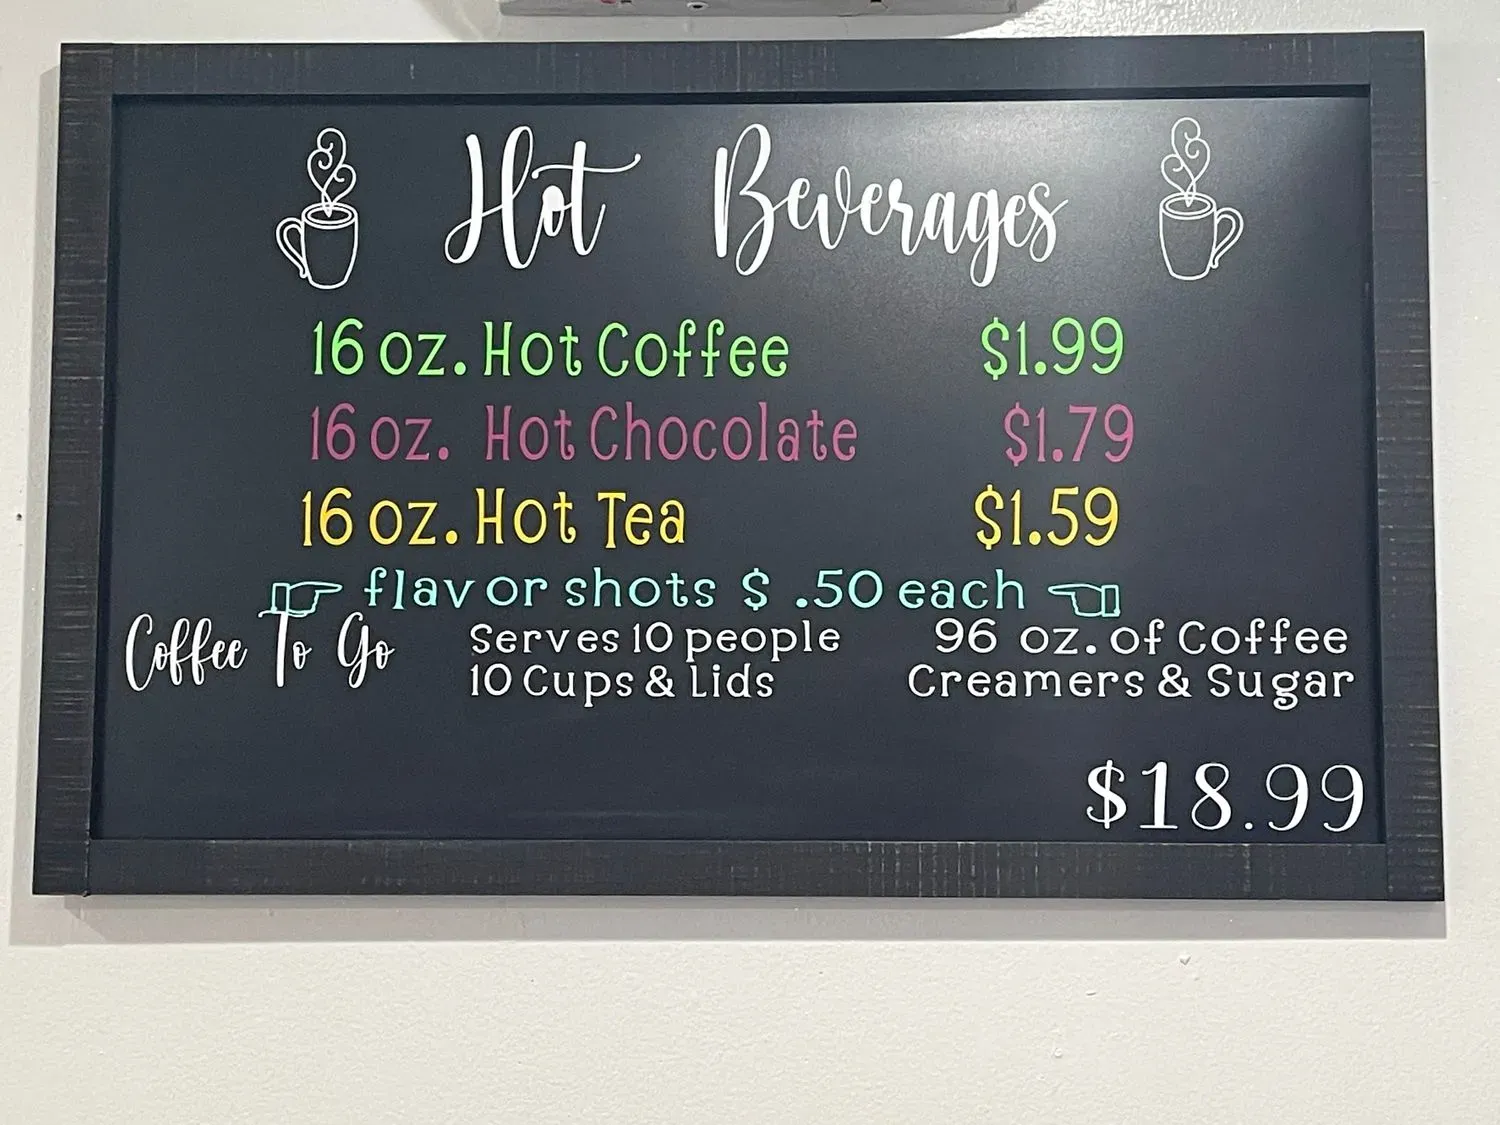 Hot Beverages
16 oz. Hot Coffee $1.99
16 oz. Hot Chocolate $1.79
16 oz. Hot Tea $1.59
flavor shots $ .50 each
Coffee To Go
Serves 10 people
10 Cups & Lids
96 oz. of Coffee
Creamers & Sugar
$18.99